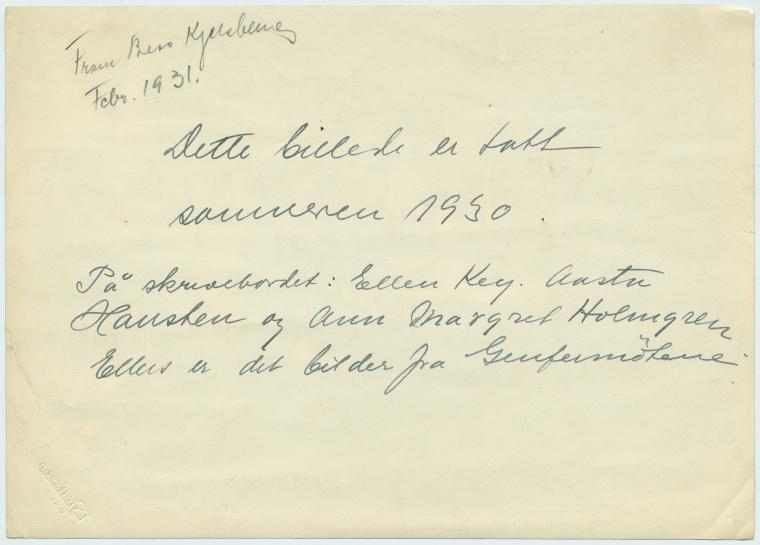 From Bess Kjelsberg
Febr. 1931.
Dette billede er tatt
sommeren 1930.
På skrivebordet: Ellen Key. Aasta
Hansten og Ann Margret Holmgren
Ellers er det bilder fra Genfermötene.